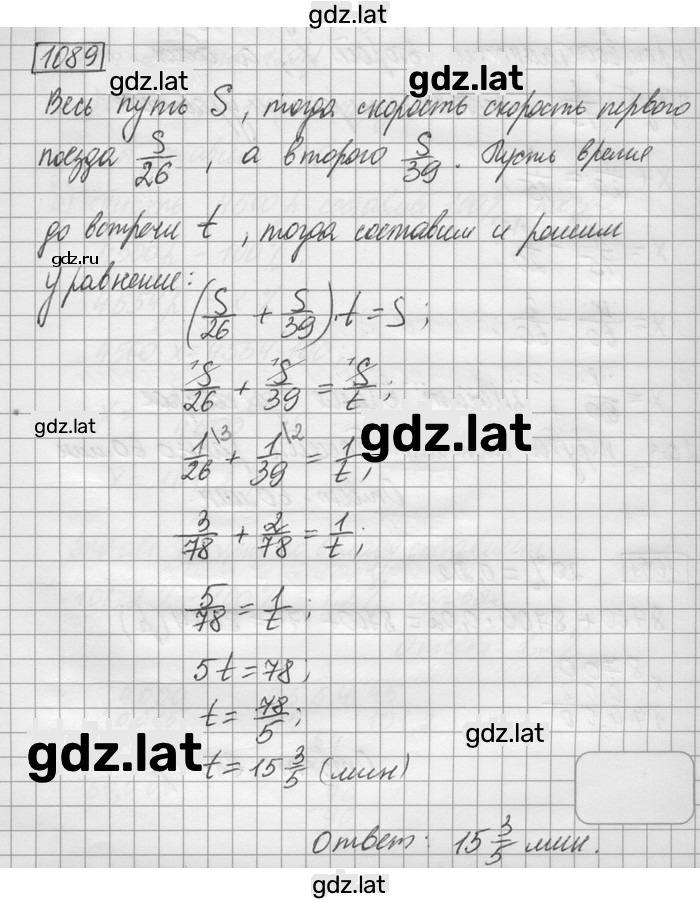 gdz.lat
1089
gdz.lat
gdz.lat
Весь путь S, тогда скорость скорость первого
поезда S/26, а второго S/39. Пусть время
до встречи t, тогда составим и решим
gdz.lat
уравнение:
(S/26 + S/39)·t = S;
¹S/26 + ¹S/39 = ¹S/t;
gdz.lat
gdz.lat
1\3/26 + 1\2/39 = 1/t;
3/78 + 2/78 = 1/t;
5/78 = 1/t;
5t = 78;
t = 78/5;
gdz.lat
gdz.lat
t = 15 3/5 (мин)
Ответ: 15 3/5 мин.
gdz.lat